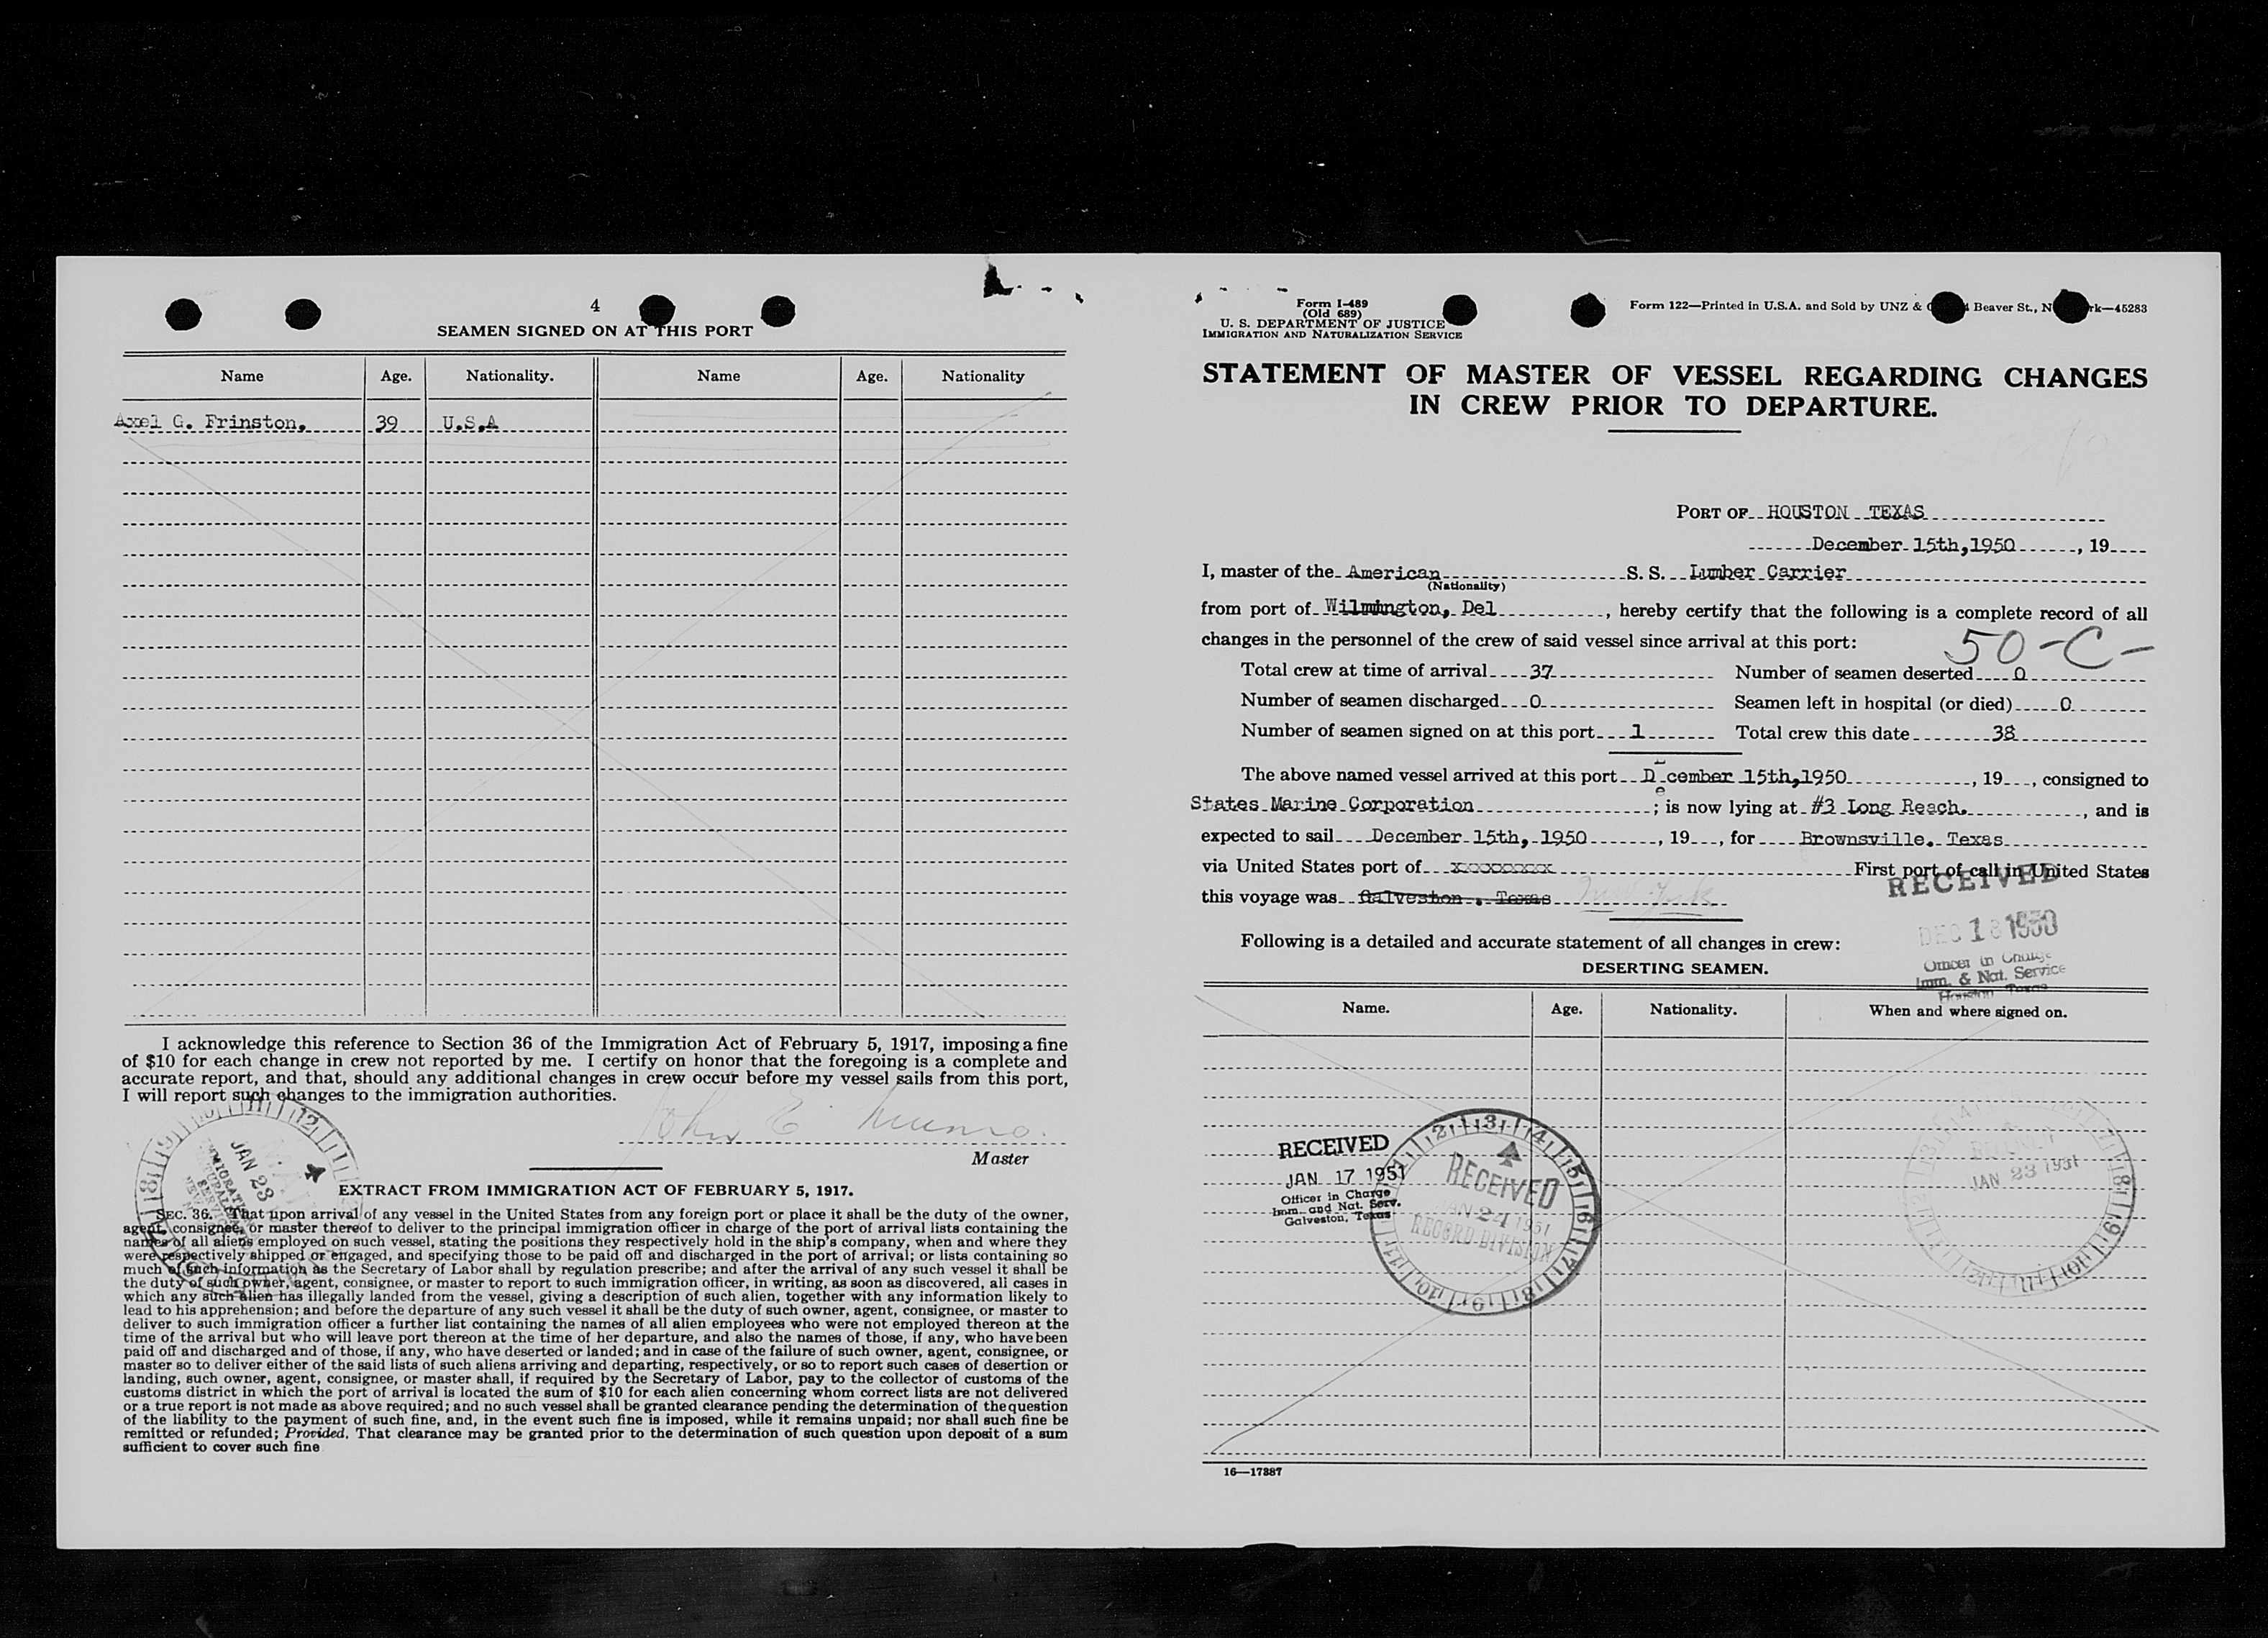 4
SEAMEN SIGNED ON AT THIS PORT
Name Age. Nationality. Name Age. Nationality
Axel G. Frinston. 39 U.S.A
I acknowledge this reference to Section 36 of the Immigration Act of February 5, 1917, imposing a fine
of $10 for each change in crew not reported by me. I certify on honor that the foregoing is a complete and
accurate report, and that, should any additional changes in crew occur before my vessel sails from this port,
I will report such changes to the immigration authorities.
John E. Munro.
Master
JAN 23
EXTRACT FROM IMMIGRATION ACT OF FEBRUARY 5, 1917.
SEC. 36. That upon arrival of any vessel in the United States from any foreign port or place it shall be the duty of the owner,
agent, consignee, or master thereof to deliver to the principal immigration officer in charge of the port of arrival lists containing the
names of all aliens employed on such vessel, stating the positions they respectively hold in the ship's company, when and where they
were respectively shipped or engaged, and specifying those to be paid off and discharged in the port of arrival; or lists containing so
much of such information as the Secretary of Labor shall by regulation prescribe; and after the arrival of any such vessel it shall be
the duty of such owner, agent, consignee, or master to report to such immigration officer, in writing, as soon as discovered, all cases in
which any such alien has illegally landed from the vessel, giving a description of such alien, together with any information likely to
lead to his apprehension; and before the departure of any such vessel it shall be the duty of such owner, agent, consignee, or master to
deliver to such immigration officer a further list containing the names of all alien employees who were not employed thereon at the
time of the arrival but who will leave port thereon at the time of her departure, and also the names of those, if any, who have been
paid off and discharged and of those, if any, who have deserted or landed; and in case of the failure of such owner, agent, consignee, or
master so to deliver either of the said lists of such aliens arriving and departing, respectively, or so to report such cases of desertion or
landing, such owner, agent, consignee, or master shall, if required by the Secretary of Labor, pay to the collector of customs of the
customs district in which the port of arrival is located the sum of $10 for each alien concerning whom correct lists are not delivered
or a true report is not made as above required; and no such vessel shall be granted clearance pending the determination of the question
of the liability to the payment of such fine, and, in the event such fine is imposed, while it remains unpaid; nor shall such fine be
remitted or refunded; Provided, That clearance may be granted prior to the determination of such question upon deposit of a sum
sufficient to cover such fine
Form I-489
(Old 689)
U. S. DEPARTMENT OF JUSTICE
IMMIGRATION AND NATURALIZATION SERVICE
Form 122—Printed in U.S.A. and Sold by UNZ & Beaver St., N rk—45283
STATEMENT OF MASTER OF VESSEL REGARDING CHANGES
IN CREW PRIOR TO DEPARTURE.
PORT OF HOUSTON TEXAS
December 15th,1950 , 19
I, master of the American S. S. Lumber Carrier
(Nationality)
from port of Wilmington, Del , hereby certify that the following is a complete record of all
changes in the personnel of the crew of said vessel since arrival at this port:
50-C-
Total crew at time of arrival 37 Number of seamen deserted 0
Number of seamen discharged 0 Seamen left in hospital (or died) 0
Number of seamen signed on at this port 1 Total crew this date 38
The above named vessel arrived at this port December 15th,1950 , 19 , consigned to
States Marine Corporation ; is now lying at #3 Long Reach. , and is
expected to sail December 15th, 1950 , 19 , for Brownsville. Texas
via United States port of xxxxxxxxx First port of call in United States
this voyage was Galveston . Texas New York
RECEIVED
DEC 18 1950
Officer in Charge
Imm. & Nat. Service
Houston Texas
Following is a detailed and accurate statement of all changes in crew:
DESERTING SEAMEN.
Name. Age. Nationality. When and where signed on.
RECEIVED
JAN 17 1951
Officer in Charge
Imm. and Nat. Serv.
Galveston, Texas
RECEIVED
JAN 24 1951
RECORD DIVISION
JAN 23 1951
16—17887